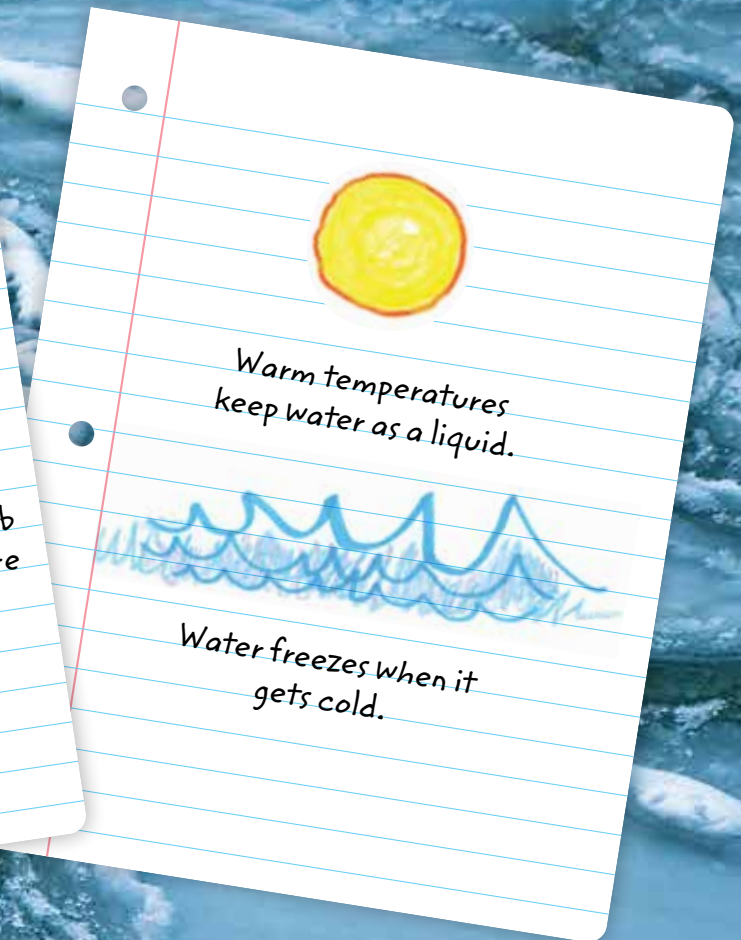 Warm temperatures
keep water as a liquid.
Water freezes when it
gets cold.